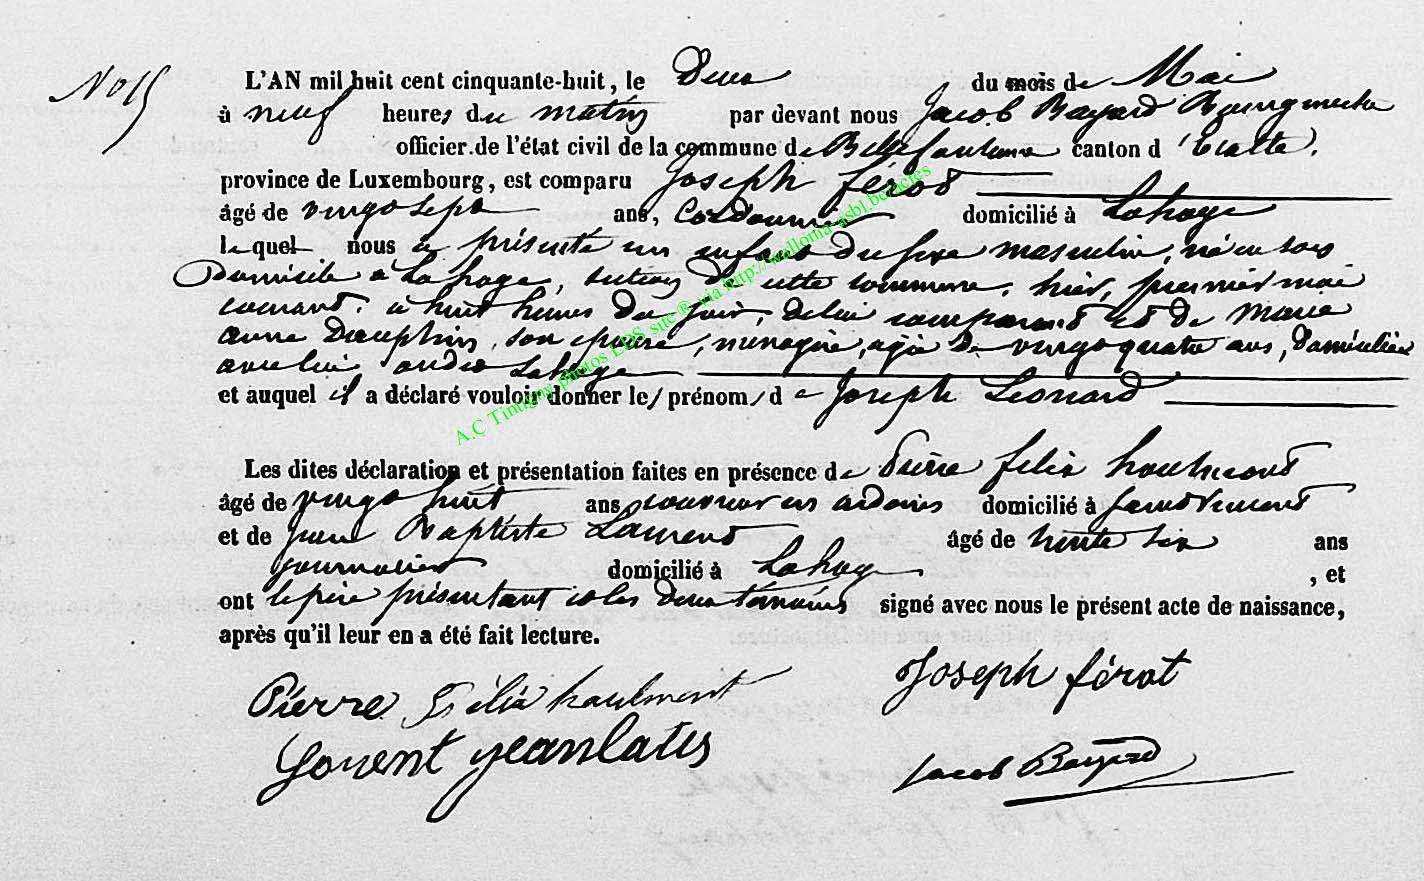 No 15
L'AN mil huit cent cinquante-huit, le Deux du mois de Mai
à neuf heures du matin par devant nous Jacob Bayard Bourgmestre
officier de l'état civil de la commune de Bellefontaine canton d'Etalle,
province de Luxembourg, est comparu Joseph férot
âgé de vingt sept ans, Cordonnier domicilié à Lahage
lequel nous a présenté un enfant du sexe masculin, né en son
Domicile à Lahage, section de cette commune, hier, premier mai
courant, à huit heures du soir, de lui comparant et de Marie
anne Dauphin, son épouse, ménagère, agée de vingt quatre ans, domiciliée
avec lui audit Lahage
et auquel il a déclaré vouloir donner le prénom de Joseph Léonard
Les dites déclaration et présentation faites en présence de Pierre félix haulmont
âgé de vingt huit ans couvreur en ardoises domicilié à
et de Jean Baptiste Laurent âgé de trente six ans
journalier domicilié à Lahage, et
ont le père présentant et les deux témoins signé avec nous le présent acte de naissance,
après qu'il leur en a été fait lecture.
Pierre Félix haulmont Joseph férot
Jacob Bayard
A.C Tintigny photos LDS site ® via http://wallonia-asbl.be/actes